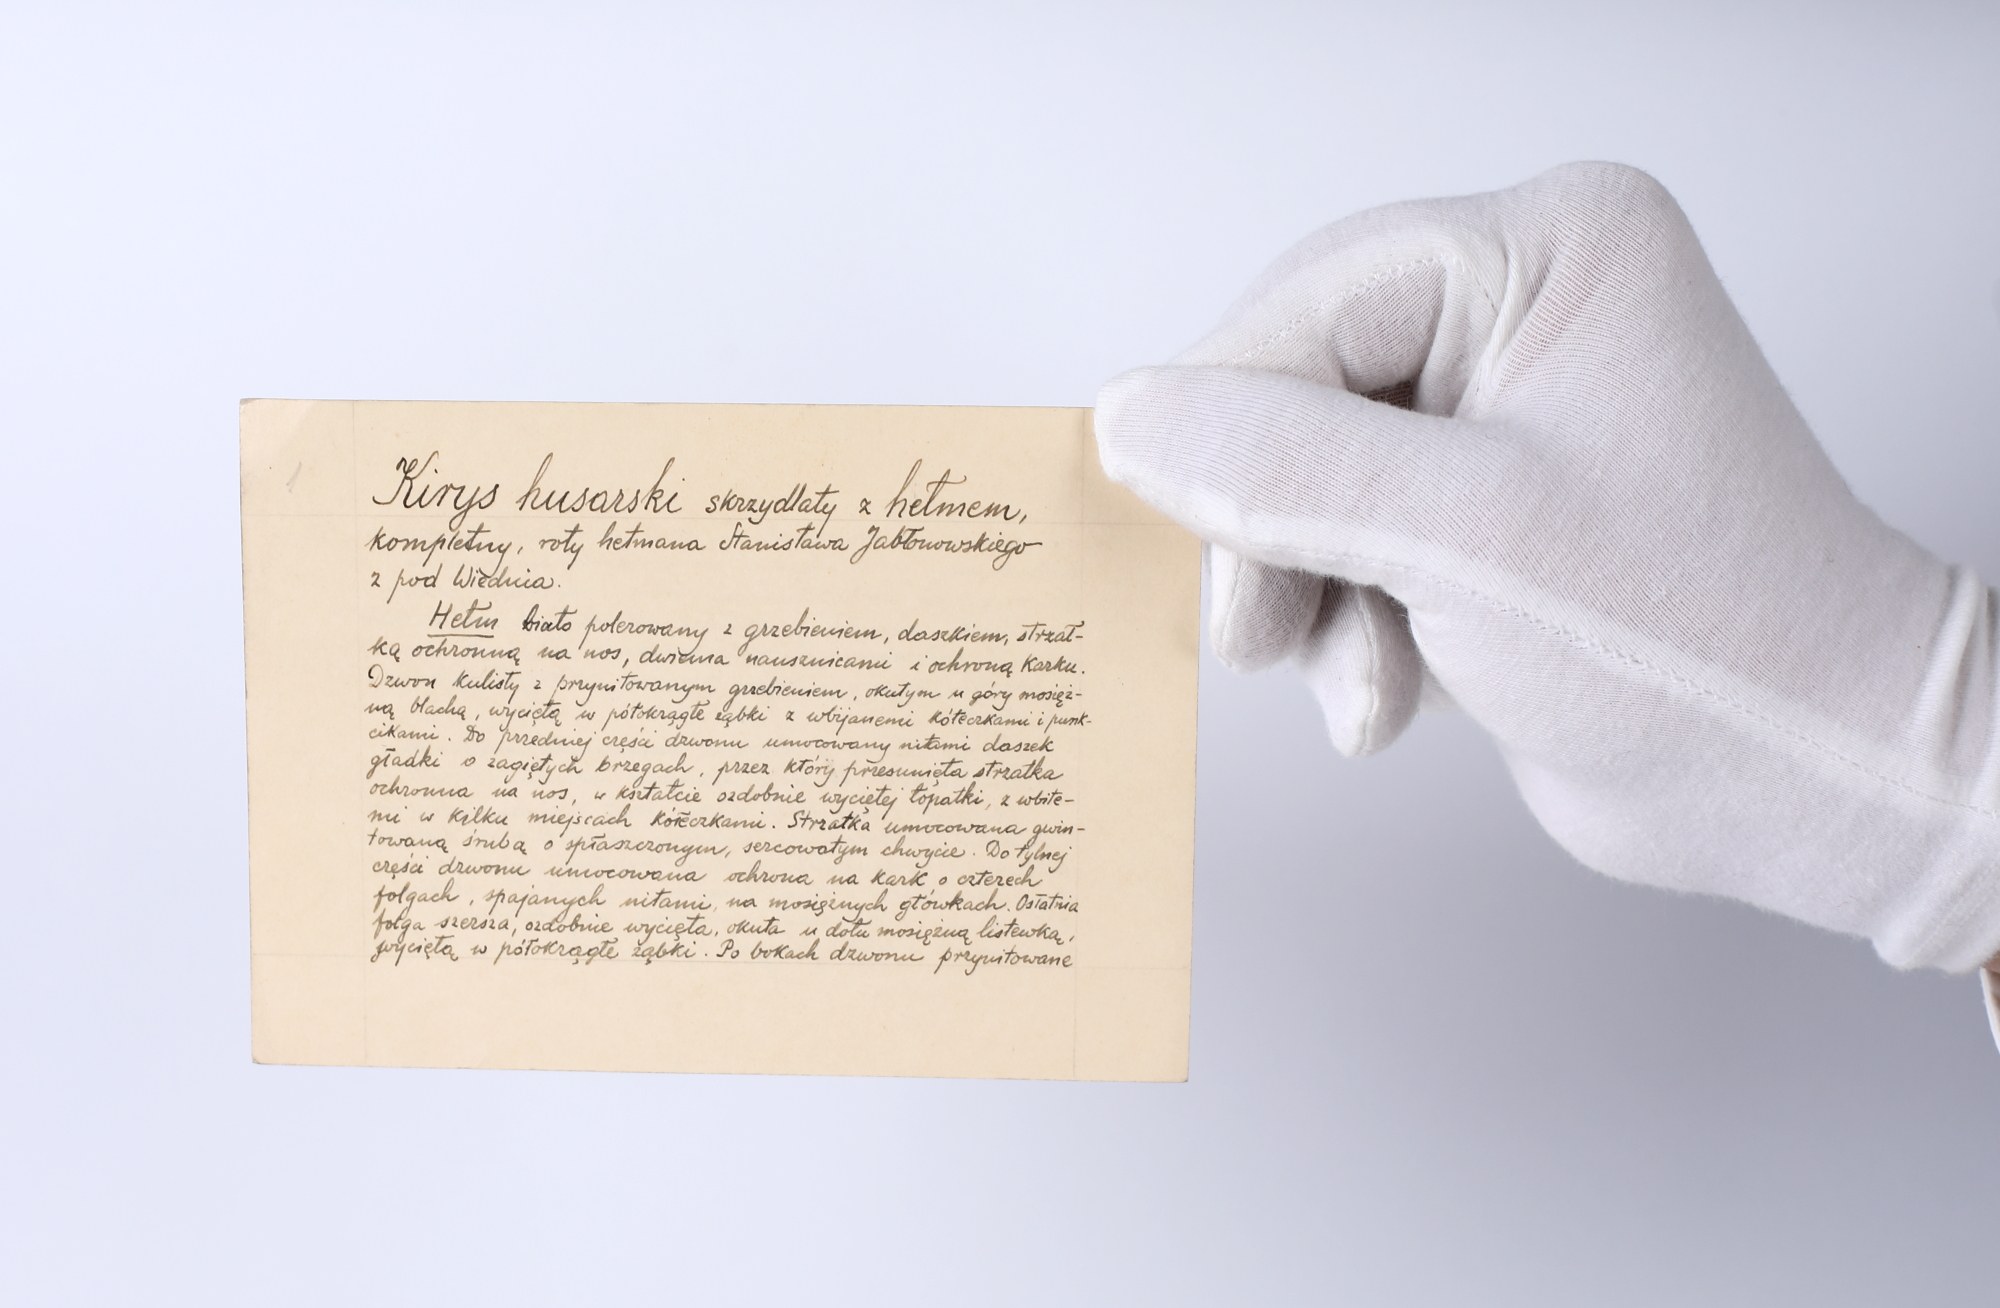 Kirys husarski skrzydlaty z hełmem,
kompletny, roty hetmana Stanisława Jabłonowskiego
z pod Wiednia.
Hełm biało polerowany z grzebieniem, daszkiem, strzał-
ką ochronną na nos, dwiema nausznicami i ochroną karku.
Dzwon kulisty z przynitowanym grzebieniem, okutym u góry mosięż-
ną blachą, wyciętą w półokrągłe ząbki z wbijanemi kółeczkami i punk-
cikami. Do przedniej części dzwonu umocowany nitami daszek
gładki o zagiętych brzegach, przez który przesunięta strzałka
ochronna na nos, w kształcie ozdobnie wyciętej łopatki, z wbite-
mi w kilku miejscach kółeczkami. Strzałka umocowana gwin-
towaną śrubą o spłaszczonym, sercowatym chwycie. Do tylnej
części dzwonu umocowana ochrona na kark o czterech
folgach, spajanych nitami, na mosiężnych główkach. Ostatnia
folga szersza, ozdobnie wycięta, okuta u dołu mosiężną listewką,
wyciętą w półokrągłe ząbki. Po bokach dzwonu przynitowane